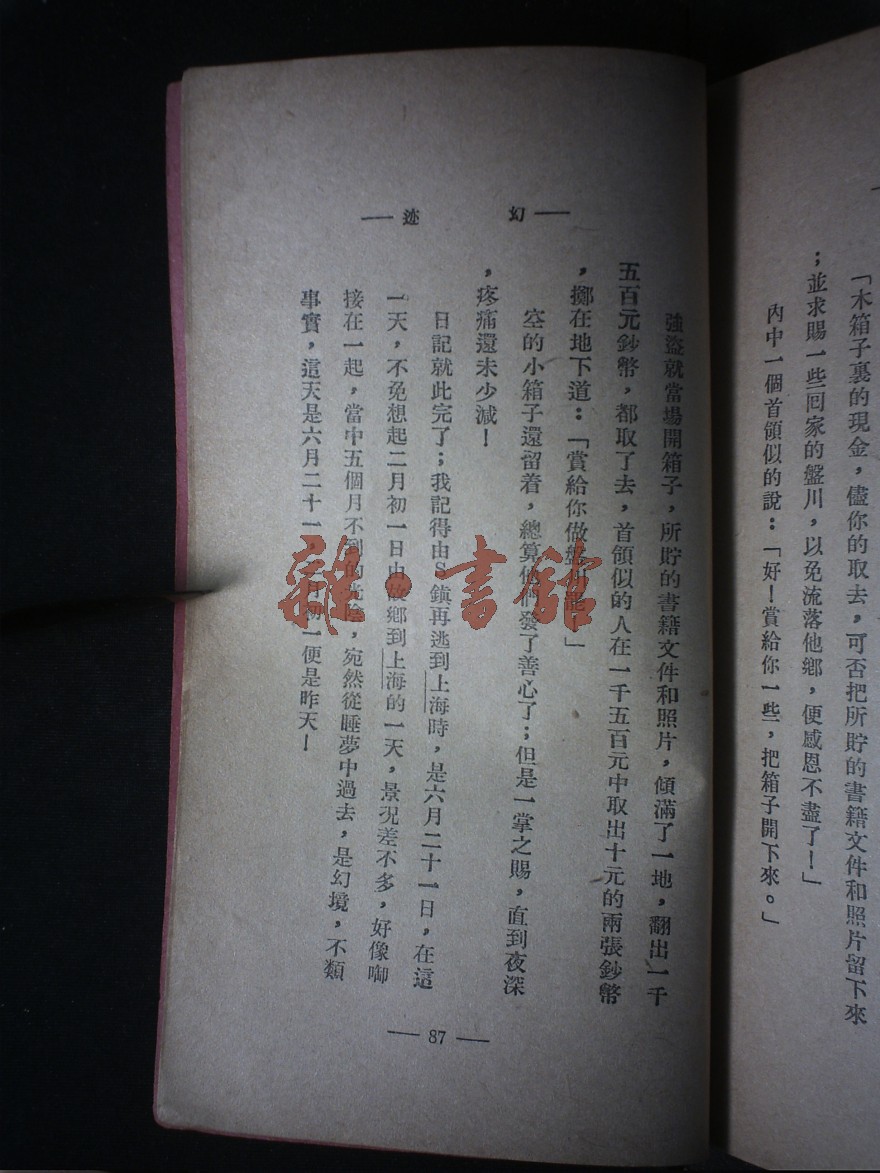 「木箱子裏的現金，儘你的取去，可否把所貯的書籍文件和照片留下來
；並求賜一些回家的盤川，以免流落他鄉，便感恩不盡了！」
內中一個首領似的說：「好！賞給你一些，把箱子開下來。」
— 幻 迹 —
強盜就當場開箱子，所貯的書籍文件和照片，傾滿了一地，翻出一千
五百元鈔幣，都取了去，首領似的人在一千五百元中取出十元的兩張鈔幣
，擲在地下道：「賞給你做盤川罷！」
空的小箱子還留着，總算他們發了善心了；但是一掌之賜，直到夜深
，疼痛還未少減！
日記就此完了；我記得由S鎮再逃到上海時，是六月二十一日，在這
一天，不免想起二月初一日由故鄉到上海的一天，景況差不多，好像啣
接在一起，當中五個月不到的光陰，宛然從睡夢中過去，是幻境，不類
事實，這天是六月二十一，二月初一便是昨天！
— 87 —
雜·書館